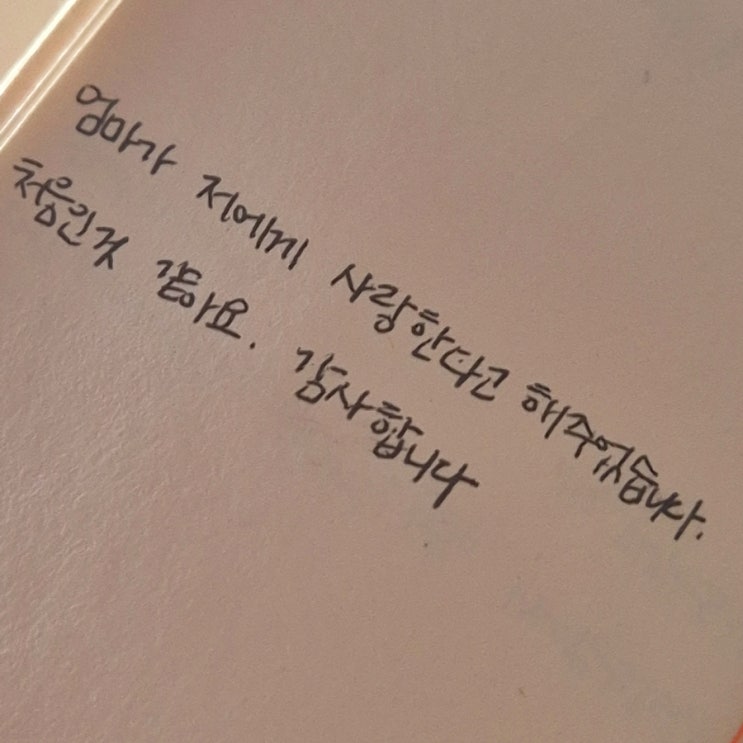 엄마가 저에게 사랑한다고 해주었습니다.
처음인것 같아요. 감사합니다